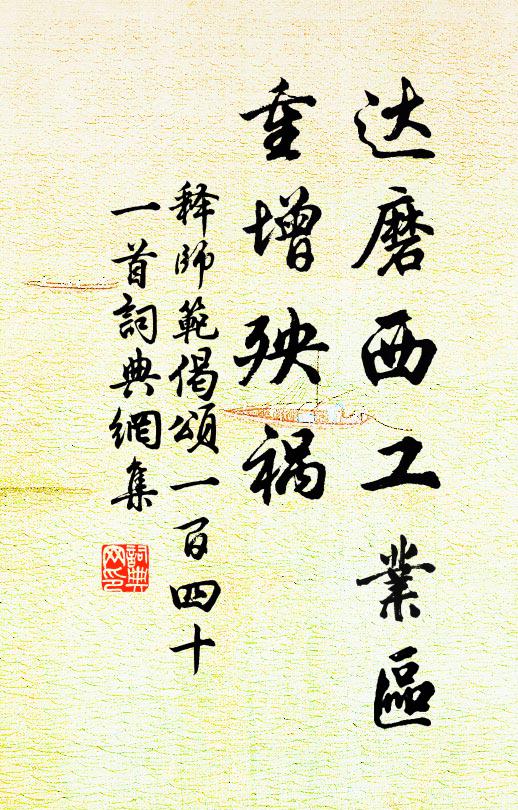 达磨西工業區
重增殃禍
释師範偈頌一百四十
一首詞典網集
詞典网印